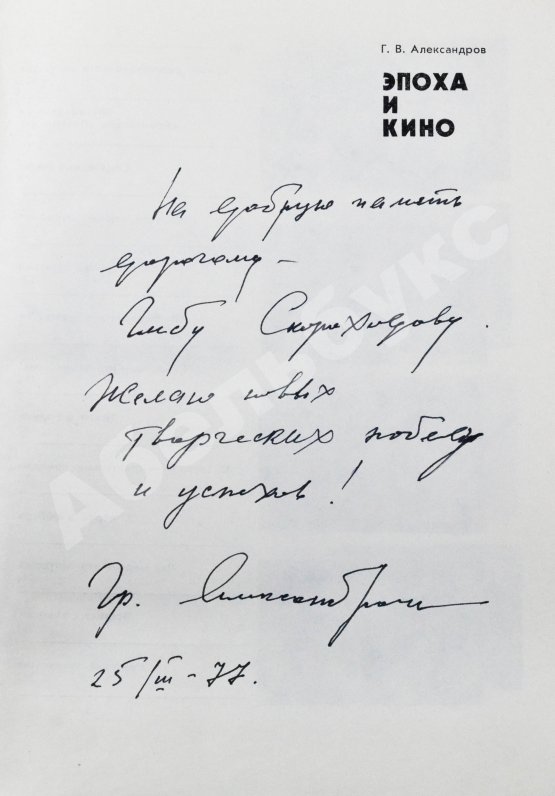 Г. В. Александров
ЭПОХА
И
КИНО
На добрую память
дорогому –
Глебу Скороходову.
Желаю новых
творческих побед
и успехов!
Гр. Александров
25/III–77.
Абельбукс